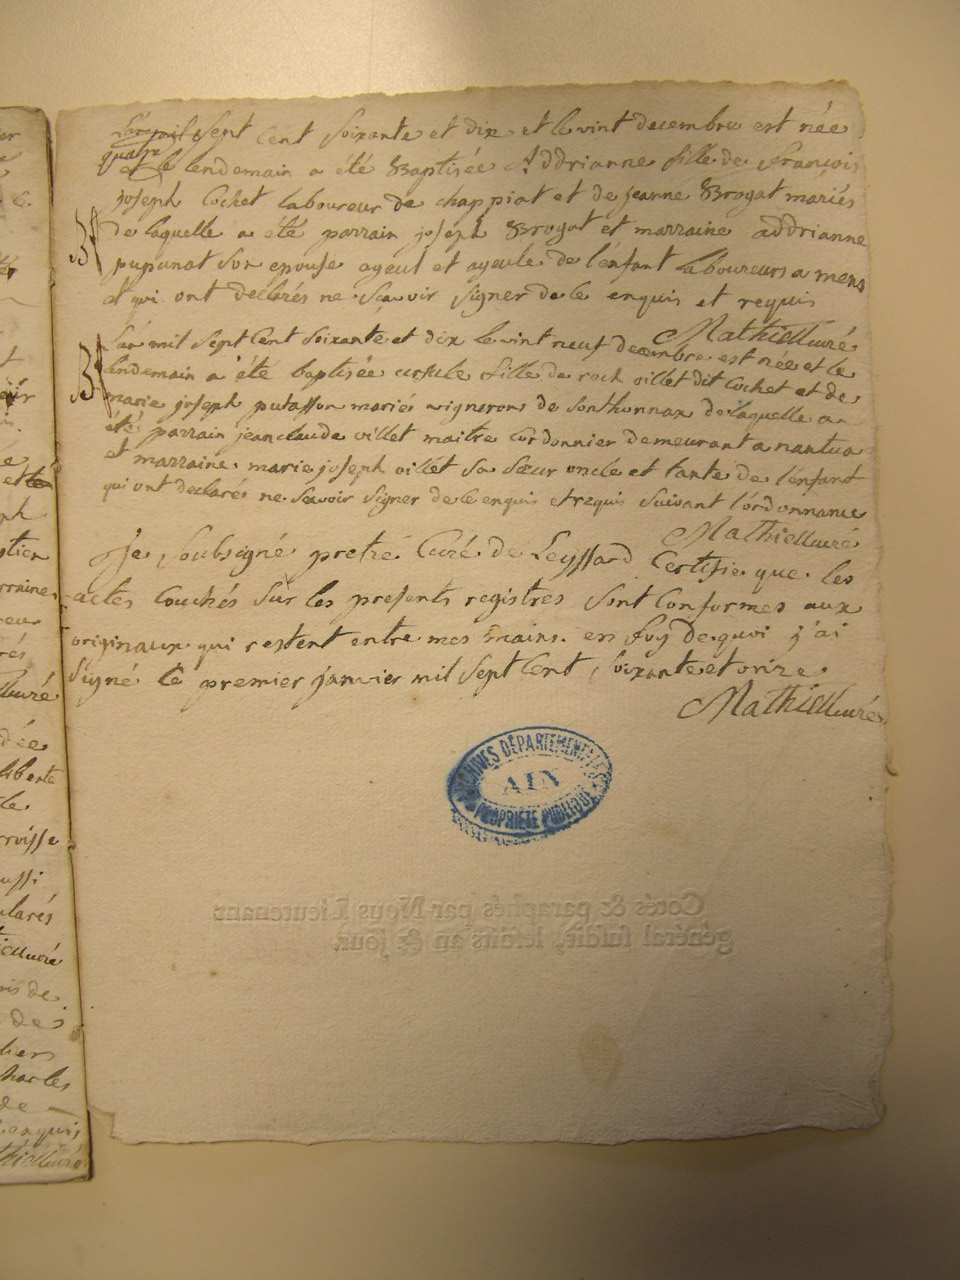 L'an mil sept cent soixante et dix et le vint decembre est née
quatre
et le lendemain a été Baptisée Addrianne fille de françois
joseph Cochet laboureur de chappiat et de jeanne Brogat mariés
de laquelle a été parrain joseph Brogat et marraine addrianne
pupunat son epouse ayeul et ayeule de l'enfant laboureurs a mens
et qui ont declarés ne scavoir signer de ce enquis et requis
Mathieu curé
B
L'an mil sept cent soixante et dix le vint neuf decembre est née et le
lendemain a été baptisée ursule fille de roch villet dit Cochet et de
marie joseph putasson mariés vignerons de sonthonnax de laquelle a
été parrain jean claude villet maitre cordonnier demeurant a nantua
et marraine marie joseph villet sa sœur oncle et tante de l'enfant
qui ont declaré ne scavoir signer de ce enquis et requis suivant l'ordonnance
Mathieu curé
B
Je soubsigné pretre Curé de Leyssard Certifie que les
actes couchés sur les presents registres sont conformes aux
originaux qui restent entre mes mains. en foy de quoi j'ai
signé le premier janvier mil sept cent soixante et onze
Mathieu curé
ARCHIVES DÉPARTEMENTALES
AIN
PROPRIÉTÉ PUBLIQUE
Cotés & paraphés par Nous Lieutenant
général susdit, lesdits an & jour.